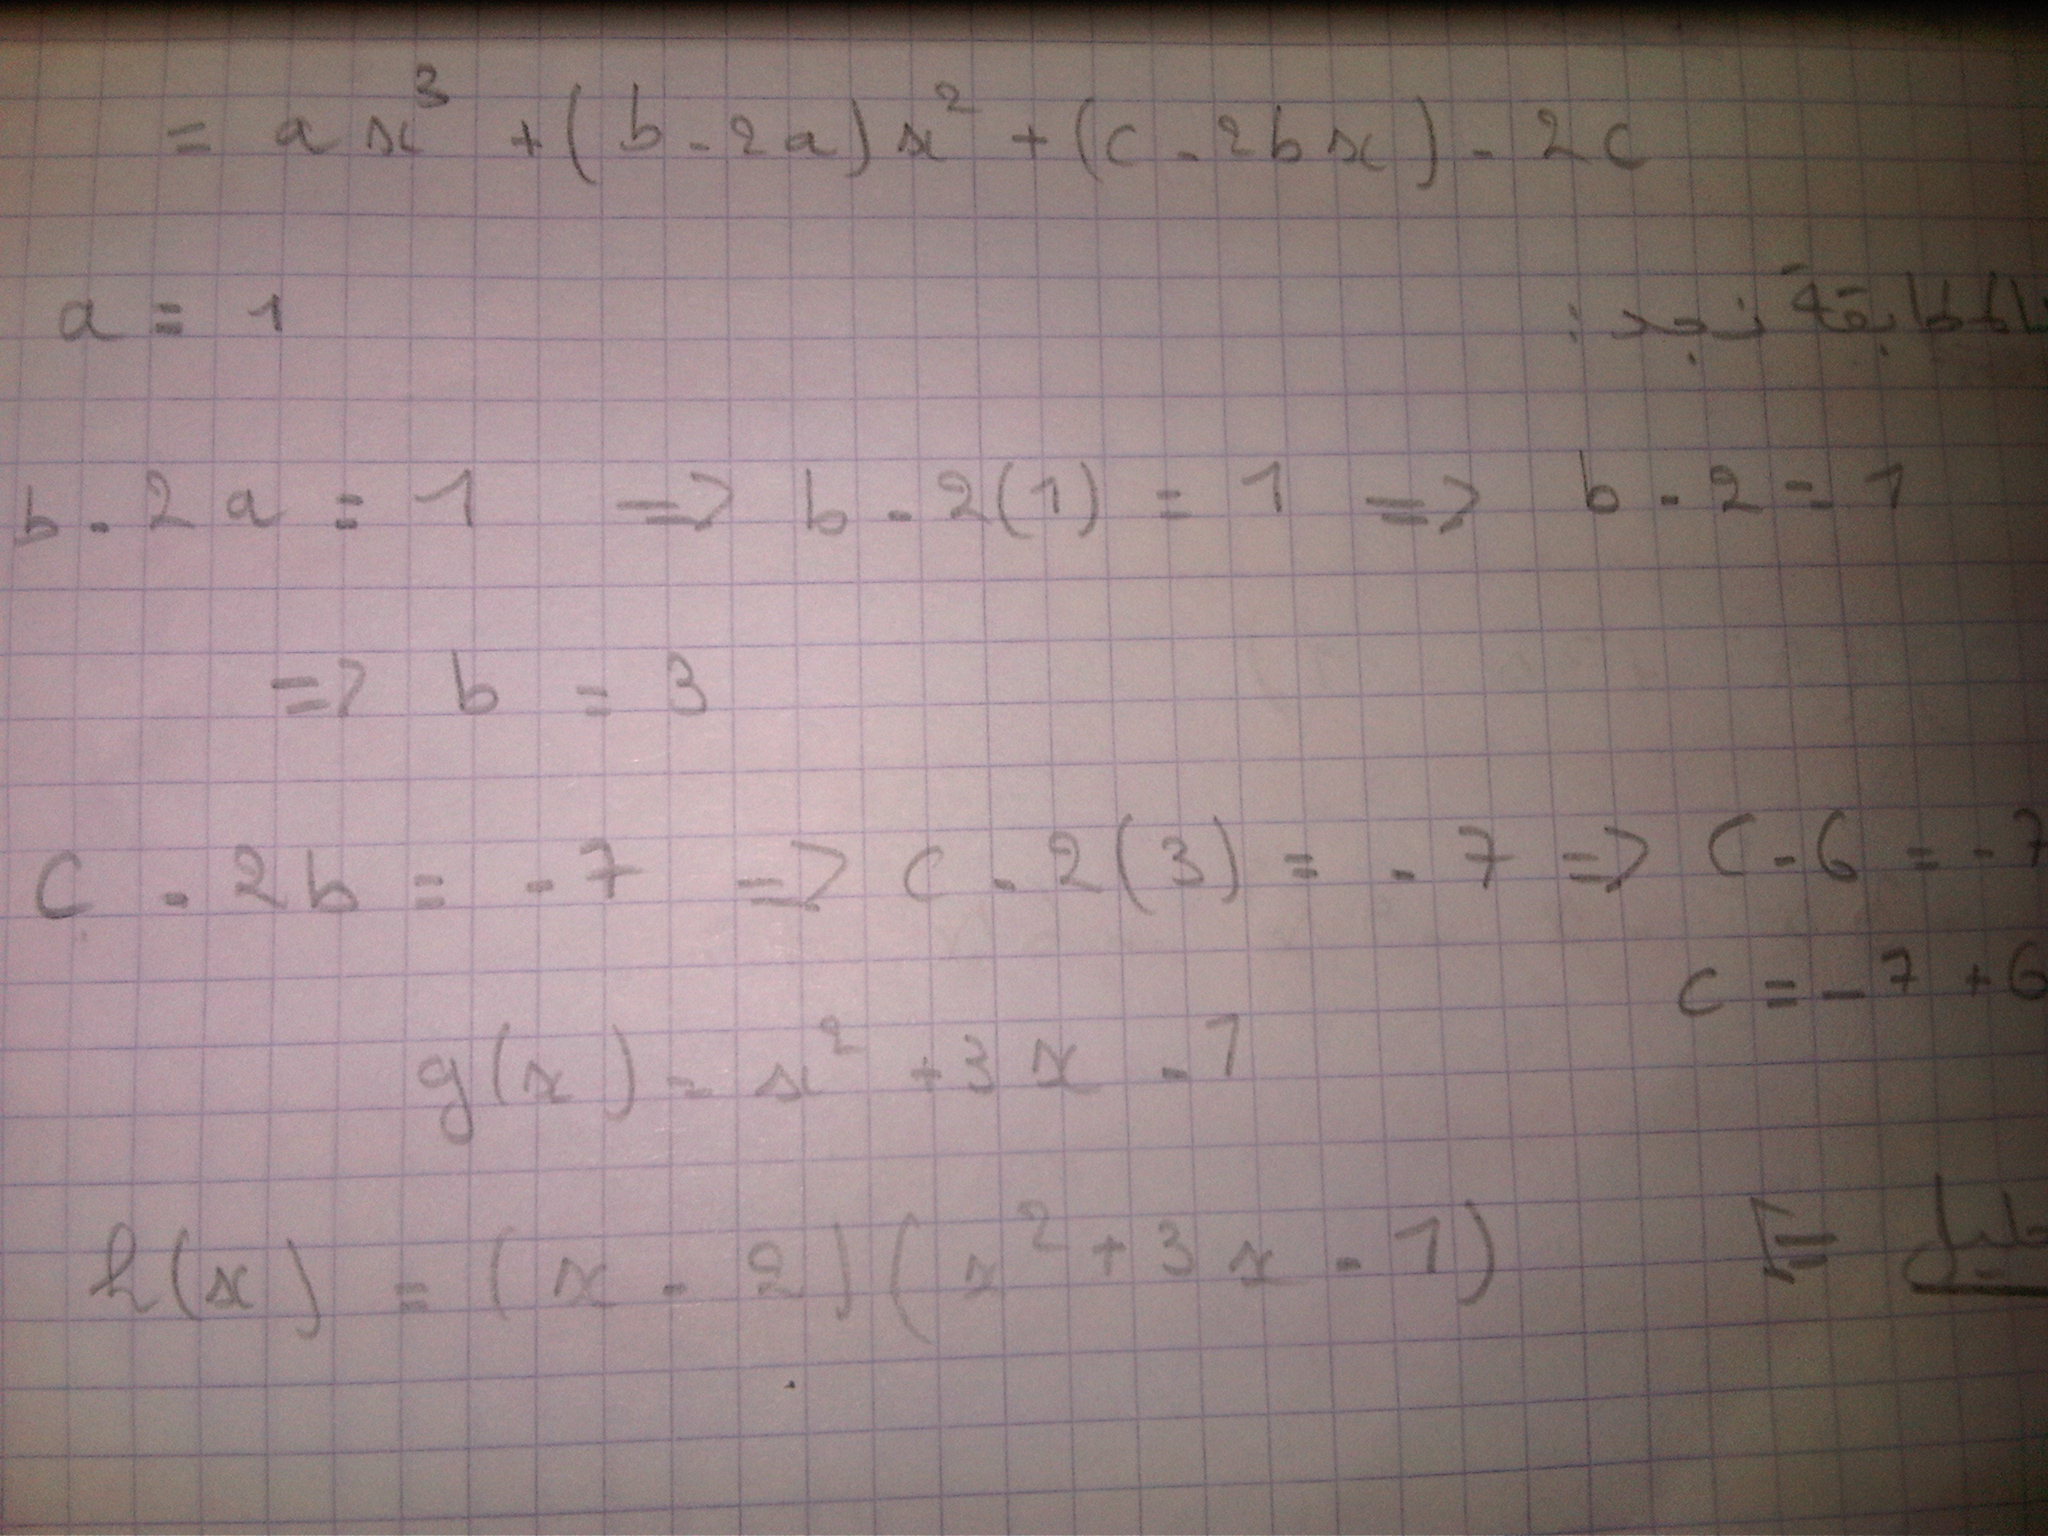 = ax³ + (b - 2a)x² + (c - 2bx) - 2c
a = 1 بالمطابقة نجد :
b - 2a = 1 => b - 2(1) = 1 => b - 2 = 1
=> b = 3
C - 2b = -7 => c - 2(3) = -7 => C - 6 = -7
c = -7 + 6
g(x) = x² + 3x - 1
h(x) = (x - 2)(x² + 3x - 1)